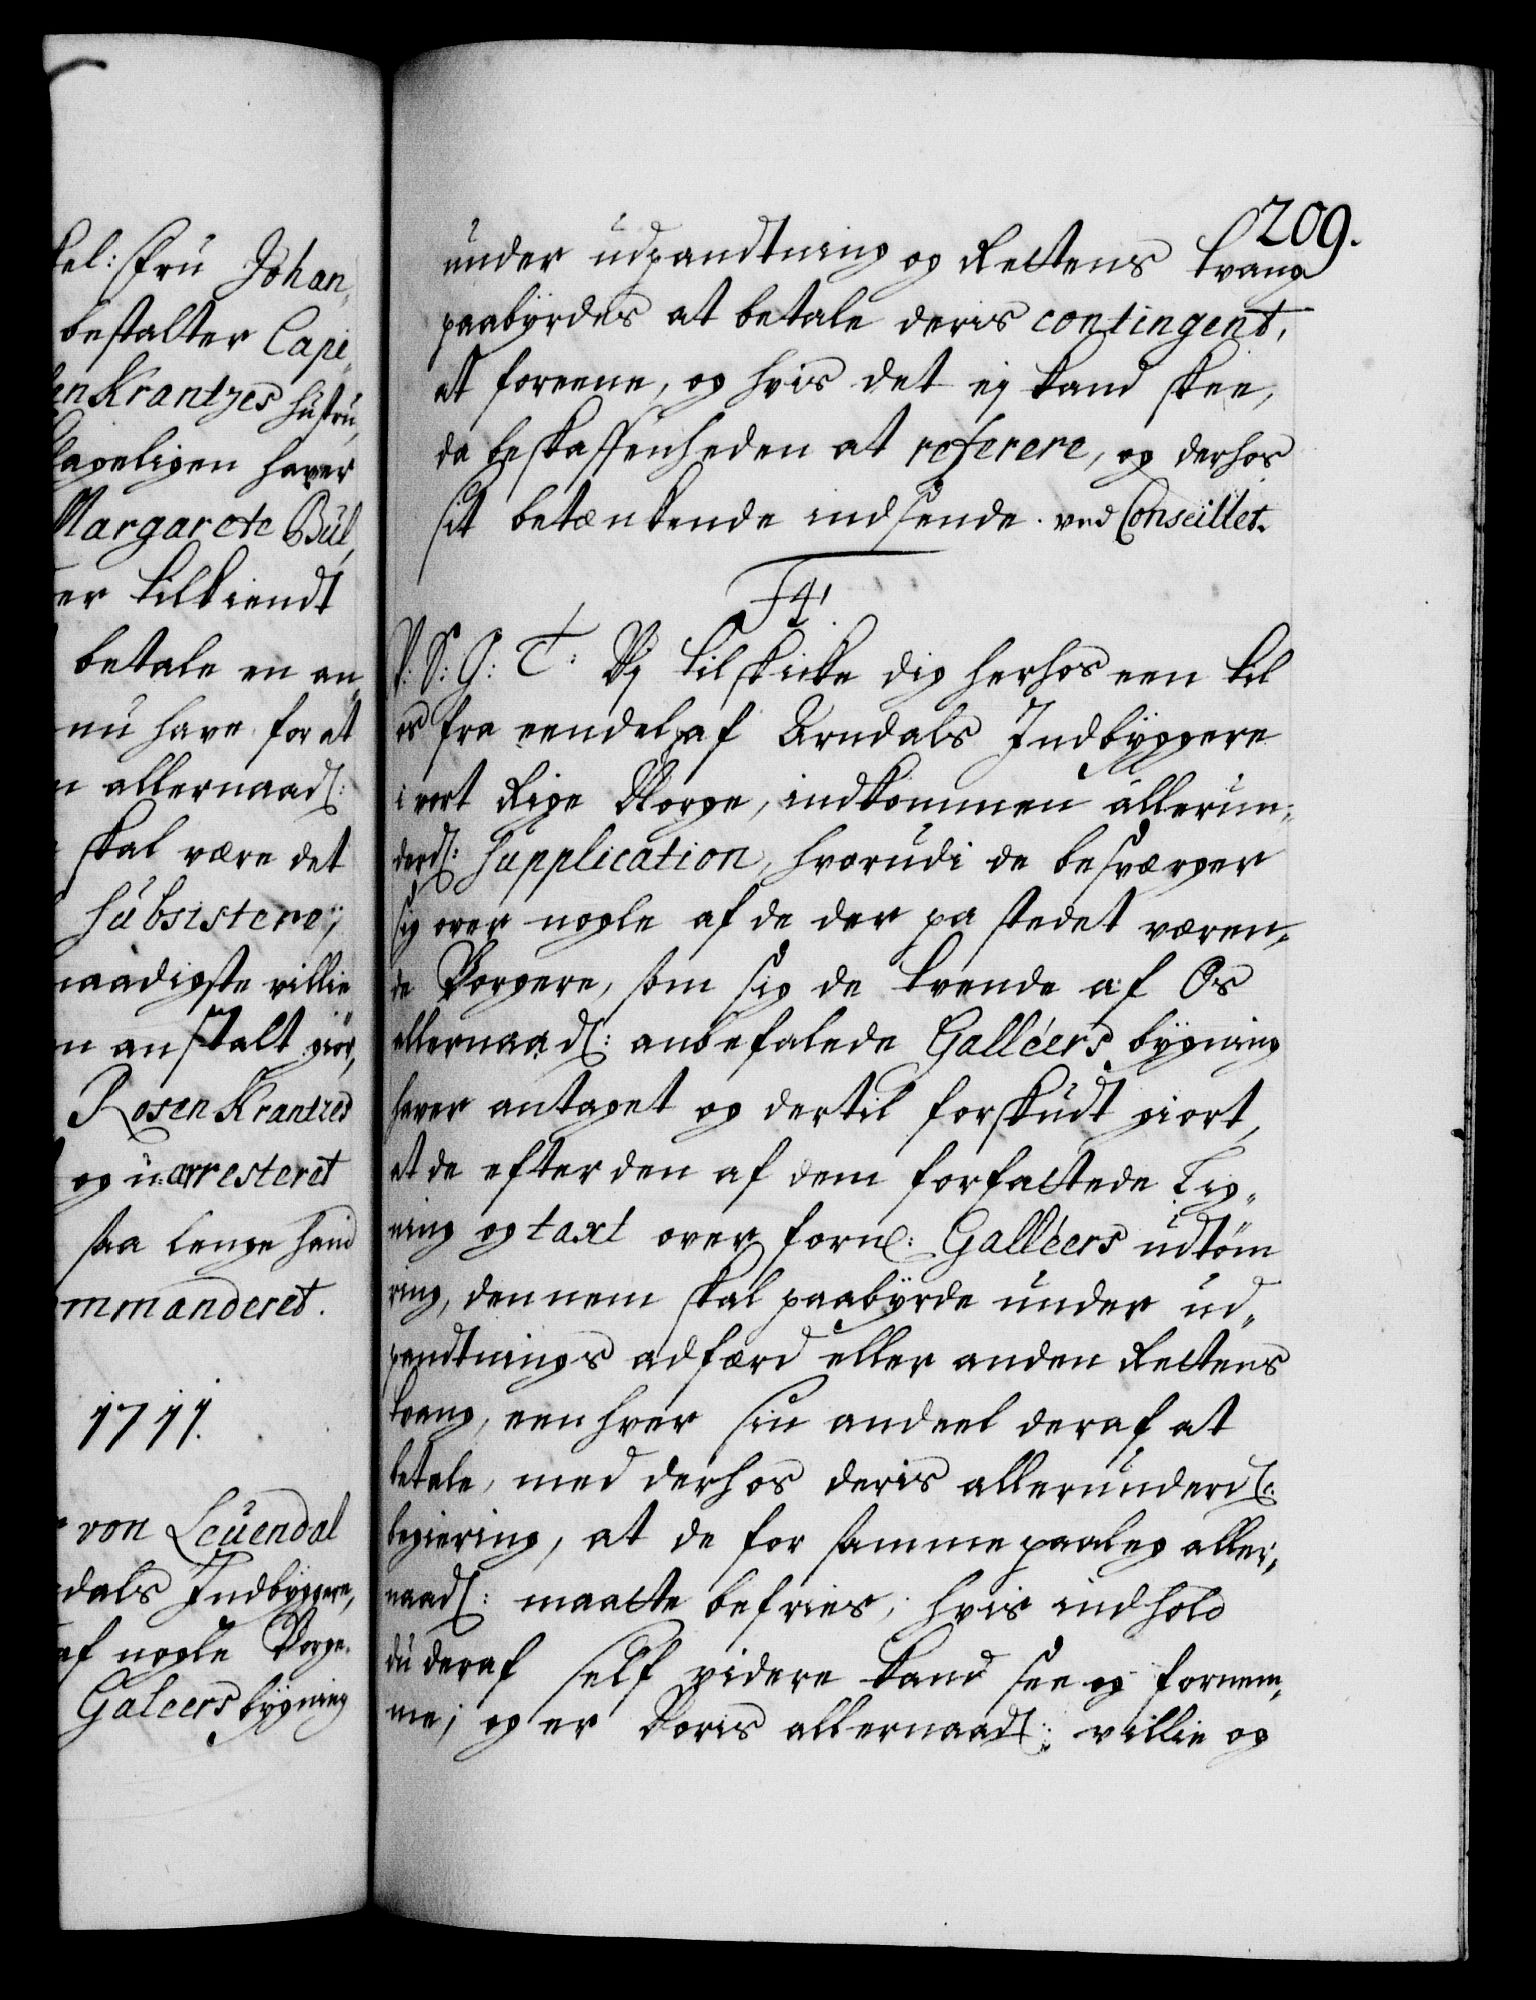 kel: Fru Johan„
bestalter Capi„
en Krantzes hustru,
lageligen haver
Margarete Bul,
er tilkiendt
betale en an„
nu have for at
n allernaad:
skal være det
subsistere,
naadigste villie
n anstalt giør,
Rosen Krantzes
og u:arresteret
saa lenge hand
mmanderet.
1711.
von Leuendal
dals Indbyggere,
af nogle Borge„
Galeers bygning
209.
under udpandtning og Rettens tvang
paabyrdes at betale deris contingent,
at foreene, og hvis det ej kand skee,
da beskaffenheden at referere, og derhos
sit betænkende indsende. ved Conseillet.
F4!
V: S: G: T: Vj tilskicke dig herhos een til
os fra eendel af Arndals Indbyggere
i vort Rige Norge, indkommen allerun„
derd: Supplication, hvorudi de besværger
sig over nogle af de der pa stedet væren„
de Borgere, som sig de tvende af Os
allernaad: anbefalede Galléers bygning
haver antaget og dertil forskudt giort,
at de efter den af dem forfattede Lig„
ning og taxt over forn: Galléers udtøm
ring, dennem skal paabyrde under ud„
pandtnings adfærd eller anden Rettens
tvang, een hver sin andeel deraf at
betale, med derhos deris allerunderd:
begiering, at de for samme paaleg aller„
naad: maatte befries, hvis indhold
du deraf self videre kand see og fornem„
me; og er Voris allernaad: villie og